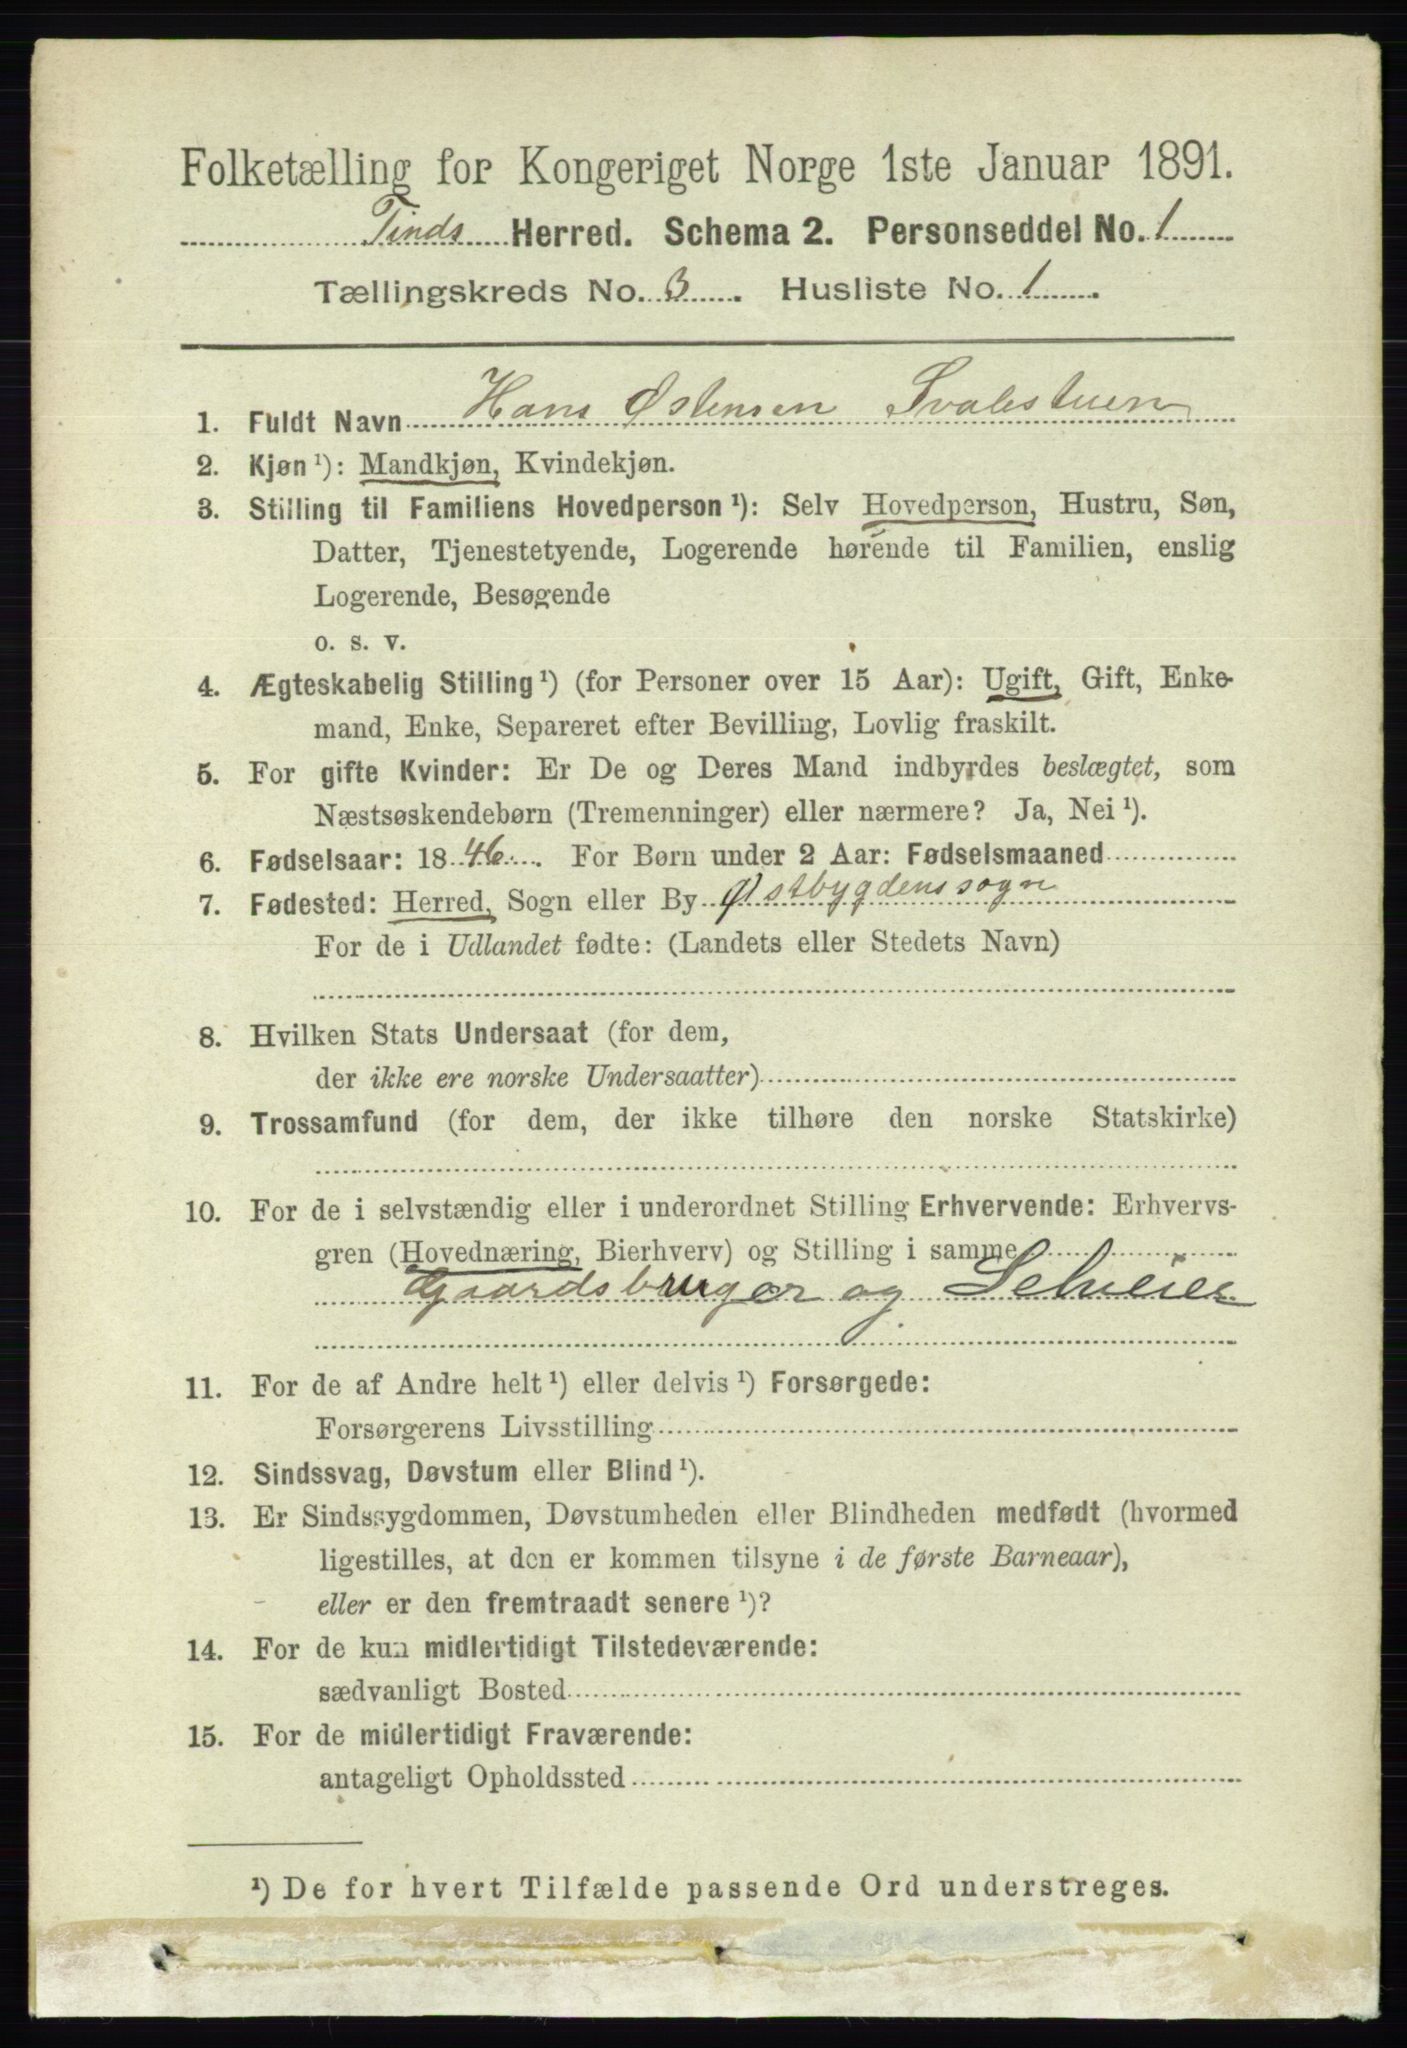 Folketælling for Kongeriget Norge 1ste Januar 1891.
Tinds Herred. Schema 2. Personseddel No. 1
Tællingskreds No. 3. Husliste No. 1.
1. Fuldt Navn Hans Østensen Svalestuen
2. Kjøn ¹): Mandkjøn, Kvindekjøn.
3. Stilling til Familiens Hovedperson ¹): Selv Hovedperson, Hustru, Søn,
Datter, Tjenestetyende, Logerende hørende til Familien, enslig
Logerende, Besøgende
o. s. v.
4. Ægteskabelig Stilling ¹) (for Personer over 15 Aar): Ugift, Gift, Enke-
mand, Enke, Separeret efter Bevilling, Lovlig fraskilt.
5. For gifte Kvinder: Er De og Deres Mand indbyrdes beslægtet, som
Næstsøskendebørn (Tremenninger) eller nærmere? Ja, Nei ¹).
6. Fødselsaar: 1846. For Børn under 2 Aar: Fødselsmaaned
7. Fødested: Herred, Sogn eller By Østbygdens sogn
For de i Udlandet fødte: (Landets eller Stedets Navn)
8. Hvilken Stats Undersaat (for dem,
der ikke ere norske Undersaatter)
9. Trossamfund (for dem, der ikke tilhøre den norske Statskirke)
10. For de i selvstændig eller i underordnet Stilling Erhvervende: Erhvervs-
gren (Hovednæring, Bierhverv) og Stilling i samme
Gaardsbruger og Selveier
11. For de af Andre helt ¹) eller delvis ¹) Forsørgede:
Forsørgerens Livsstilling
12. Sindssvag, Døvstum eller Blind ¹).
13. Er Sindssygdommen, Døvstumheden eller Blindheden medfødt (hvormed
ligestilles, at den er kommen tilsyne i de første Barneaar),
eller er den fremtraadt senere ¹)?
14. For de kun midlertidigt Tilstedeværende:
sædvanligt Bosted
15. For de midlertidigt Fraværende:
antageligt Opholdssted
¹) De for hvert Tilfælde passende Ord understreges.